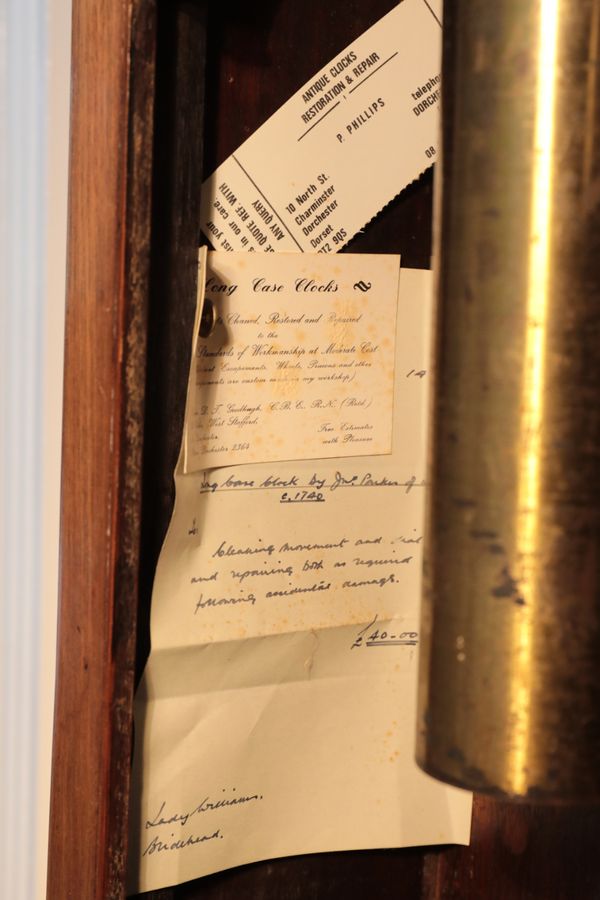 ANTIQUE CLOCKS
RESTORATION & REPAIR
P. PHILLIPS
telepho
DORCHE
08
10 North St.
Charminster
Dorchester
Dorset
DT2 9QS
ANY QUERY
SE QUOTE REF. WITH
in our care.
ust your
Long Case Clocks
Cleaned, Restored and Repaired
to the
Standards of Workmanship at Moderate Cost
Escapements. Wheels, Pinions and other
are custom made in my workshop)
D. T. Goodhugh, C.B.E., R.N. (Retd.)
West Stafford,
Free Estimates
with Pleasure
Dorchester 2364
Long Case Clock by Jno. Parker of
c. 1740
Cleaning movement and dial
and repairing both as required
following accidental damage.
£40-00
Lady Williams.
Bridehead.